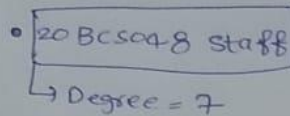 • 20BCS048 Staff
↳ Degree = 7